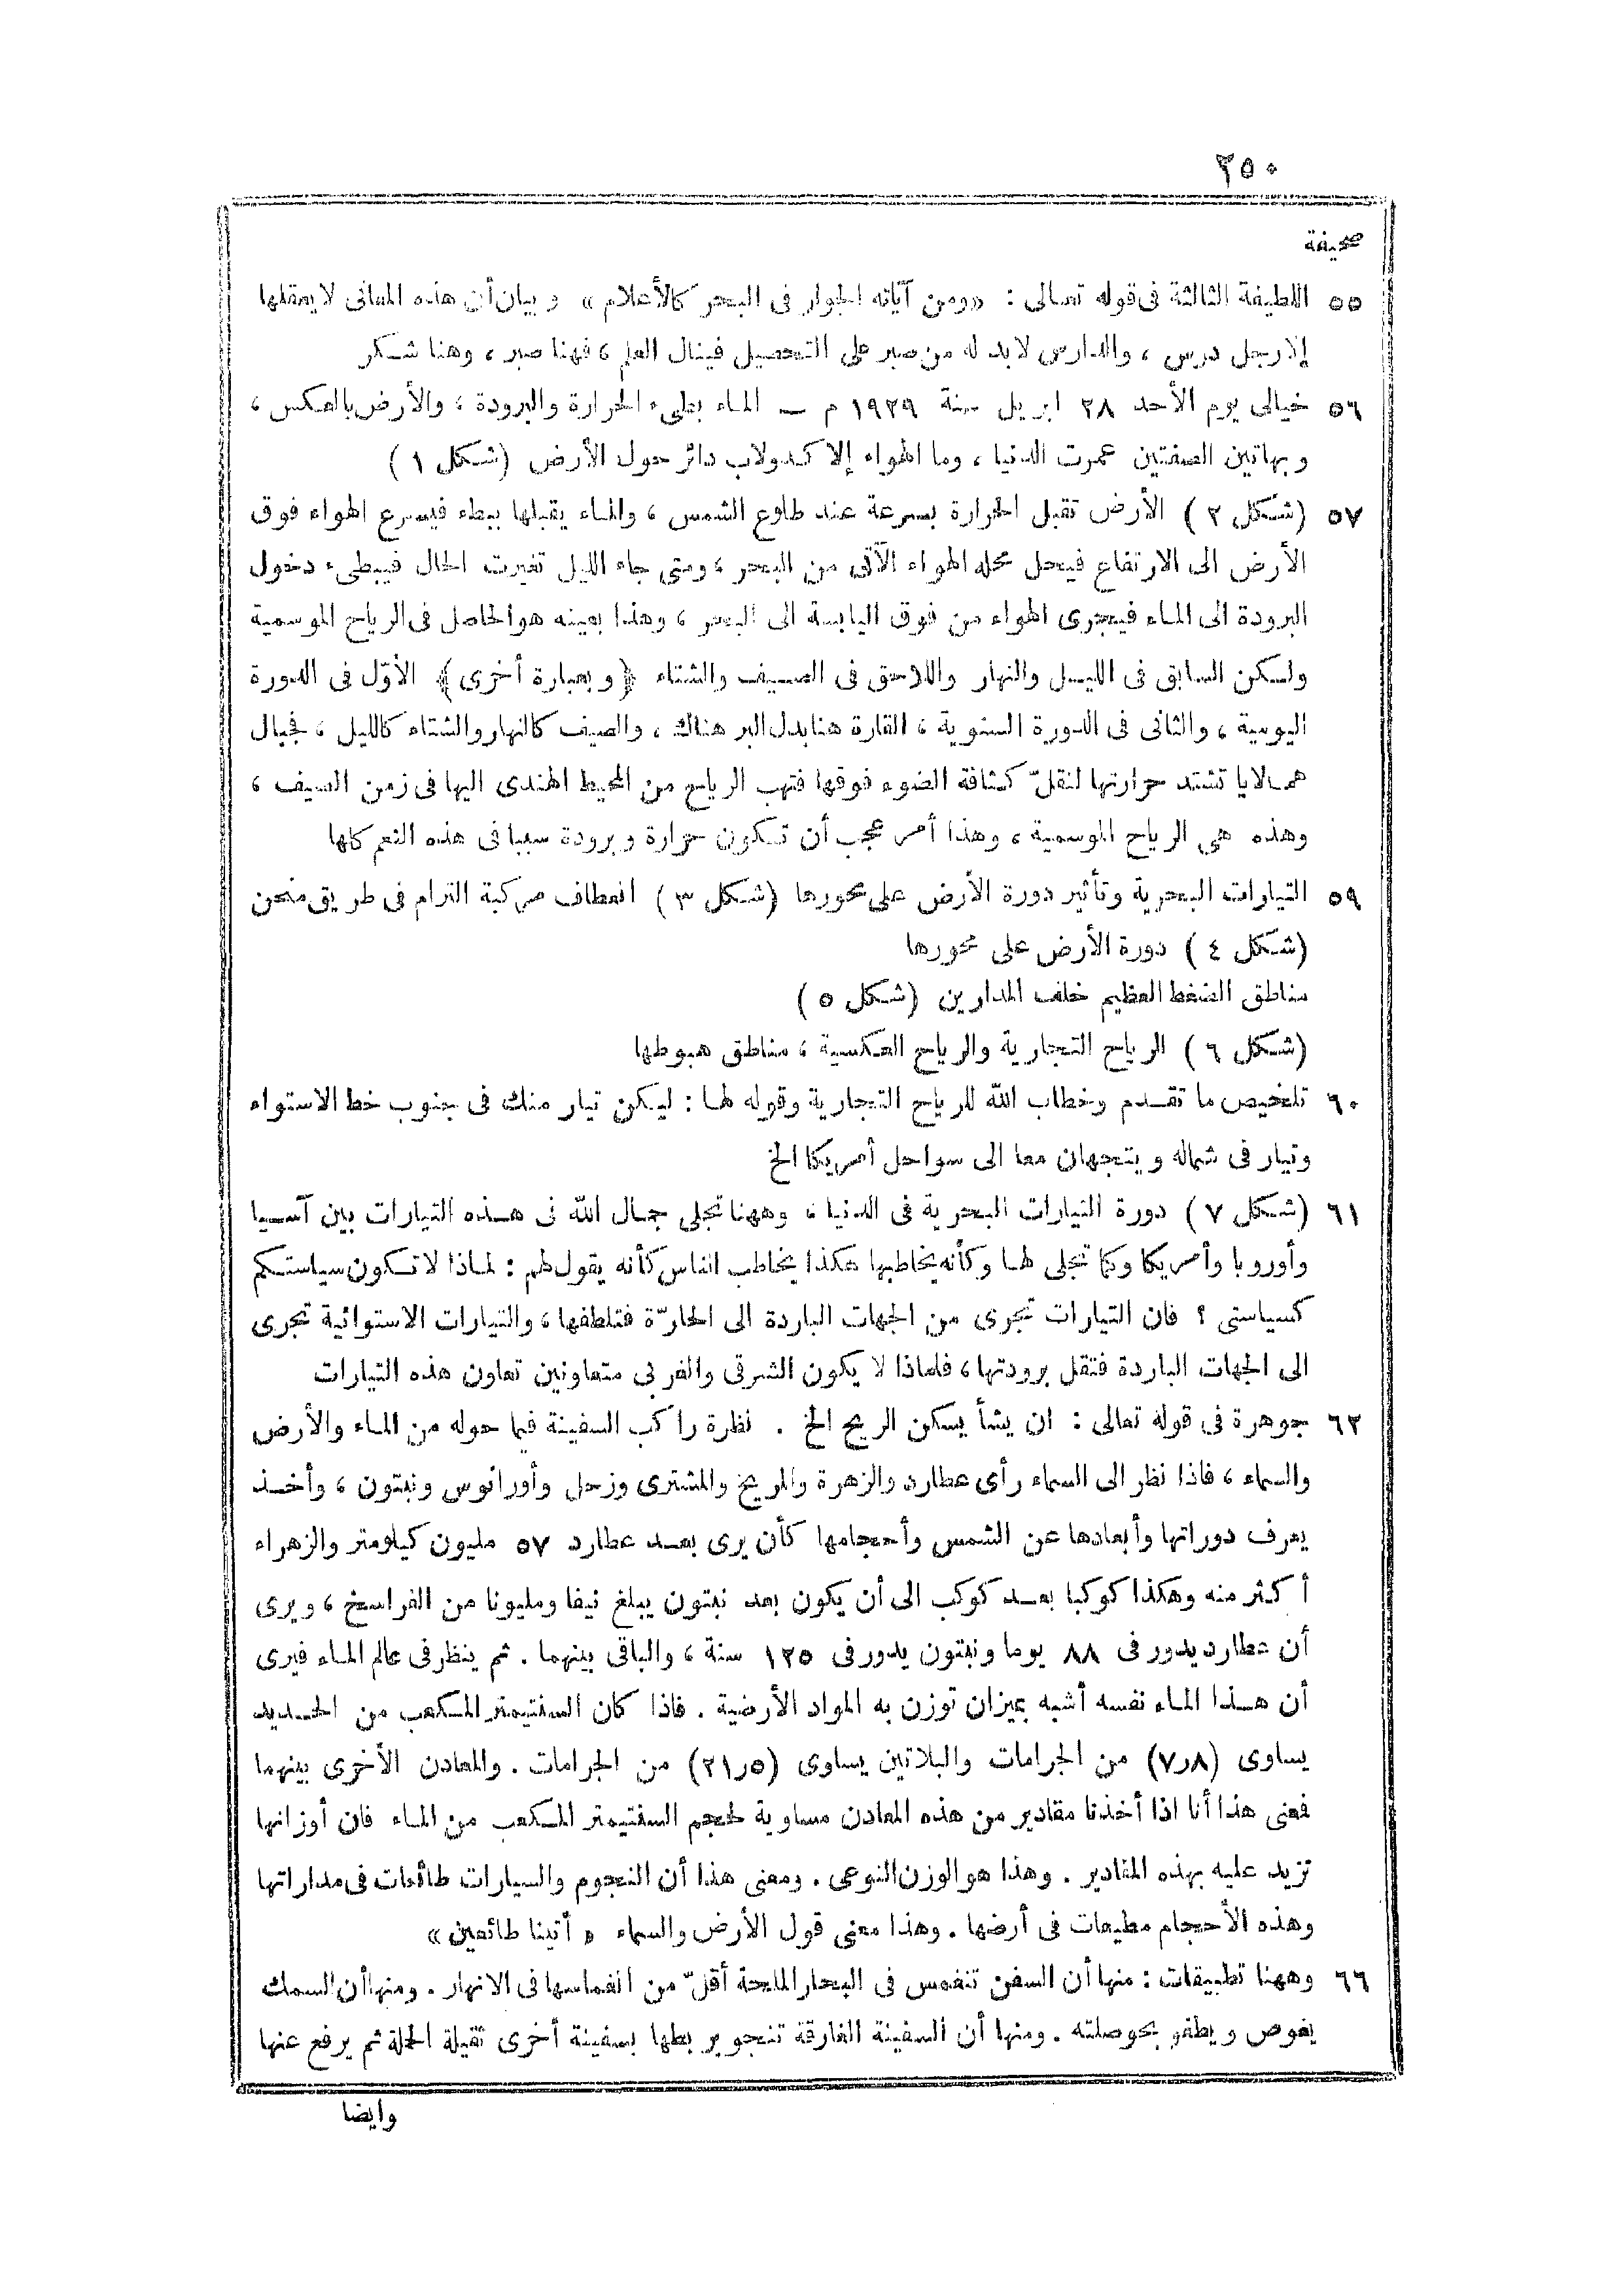 ٢٥٠
صحيفة
٥٥ اللطيفة الثالثة فى قوله تعالى : «ومن آياته الجوار فى البحر كالأعلام» وبيان أن هذه المعانى لا يعقلها
إلا رجل درس ، والدارس لا بد له من صبر على التحصيل فينال العلم ، فهنا صبر ، وهنا شكر
٥٦ خيالى يوم الأحد ٢٨ ابريل سنة ١٩٢٩ م ــ الماء بطىء الحرارة والبرودة ، والأرض بالعكس ،
وبهاتين الصفتين عمرت الدنيا ، وما الهواء إلا كدولاب دائر حول الأرض (شكل ١)
٥٧ (شكل ٢) الأرض تقبل الحرارة بسرعة عند طلوع الشمس ، والماء يقبلها ببطء فيسرع الهواء فوق
الأرض الى الارتفاع فيحل محله الهواء الآتى من البحر ، ومتى جاء الليل تغيرت الحال فيبطىء دخول
البرودة الى الماء فيجرى الهواء من فوق اليابسة الى البحر ، وهذا بعينه هو الحاصل فى الرياح الموسمية
ولكن السابق فى الليل والنهار واللاحق فى الصيف والشتاء ﴿وبعبارة أخرى﴾ الأوّل فى الدورة
اليومية ، والثانى فى الدورة السنوية ، القارة هنا بدل البر هناك ، والصيف كالنهار والشتاء كالليل ، فجبال
همالايا تشتد حرارتها لنقلّ كثافة الضوء فوقها فتهب الرياح من المحيط الهندى اليها فى زمن الصيف ،
وهذه هى الرياح الموسمية ، وهذا أمر عجب أن تكون حرارة وبرودة سببا فى هذه النعم كلها
٥٩ التيارات البحرية وتأثير دورة الأرض على محورها (شكل ٣) انعطاف مركبة الترام فى طريق منحن
(شكل ٤) دورة الأرض على محورها
مناطق الضغط العظيم خلف المدارين (شكل ٥)
(شكل ٦) الرياح التجارية والرياح العكسية ، مناطق هبوطها
٦٠ تلخيص ما تقدم وخطاب الله للرياح التجارية وقوله لها : ليكن تيار منك فى جنوب خط الاستواء
وتيار فى شماله ويتجهان معا الى سواحل أمريكا الخ
٦١ (شكل ٧) دورة التيارات البحرية فى الدنيا ، وههنا تجلى جمال الله فى هذه التيارات بين آسيا
وأوروبا وأمريكا وكما تجلى لها وكأنه يخاطبها هكذا يخاطب الناس كأنه يقول لهم : لماذا لا تكون سياستكم
كسياستى ؟ فان التيارات تجرى من الجهات الباردة الى الحارّة فتلطفها ، والتيارات الاستوائية تجرى
الى الجهات الباردة فتقل برودتها ، فلماذا لا يكون الشرقى والغربى متعاونين تعاون هذه التيارات
٦٢ جوهرة فى قوله تعالى : ان يشأ يسكن الريح الخ . نظرة راكب السفينة فيما حوله من الماء والأرض
والسماء ، فاذا نظر الى السماء رأى عطارد والزهرة والمريخ والمشترى وزحل وأورانوس ونبتون ، وأخذ
يعرف دوراتها وأبعادها عن الشمس وأحجامها كأن يرى بعد عطارد ٥٧ مليون كيلومتر والزهراء
أكثر منه وهكذا كوكبا بعد كوكب الى أن يكون بعد نبتون يبلغ نيفا ومليونا من الفراسخ ، ويرى
أن عطارد يدور فى ٨٨ يوما ونبتون يدور فى ١٢٥ سنة ، والباقى بينهما . ثم ينظر فى عالم الماء فيرى
أن هذا الماء نفسه أشبه بميزان توزن به المواد الأرضية . فاذا كان السنتيمتر المكعب من الحديد
يساوى (٧٫٨) من الجرامات والبلاتين يساوى (٢١٫٥) من الجرامات . والمعادن الأخرى بينهما
فمعنى هذا أنا اذا أخذنا مقادير من هذه المعادن مساوية لحجم السنتيمتر المكعب من الماء فان أوزانها
تزيد عليه بهذه المقادير . وهذا هو الوزن النوعى . ومعنى هذا أن النجوم والسيارات طائعات فى مداراتها
وهذه الأحجام مطيعات فى أرضها . وهذا معنى قول الأرض والسماء « أتينا طائعين »
٦٦ وههنا تطبيقات : منها أن السفن تنغمس فى البحار الملحة أقلّ من انغماسها فى الانهار . ومنها أن السمك
يغوص ويطفو بحوصلته . ومنها أن السفينة الغارقة تنجو بربطها بسفينة أخرى ثقيلة الحملة ثم يرفع عنها
وايضا